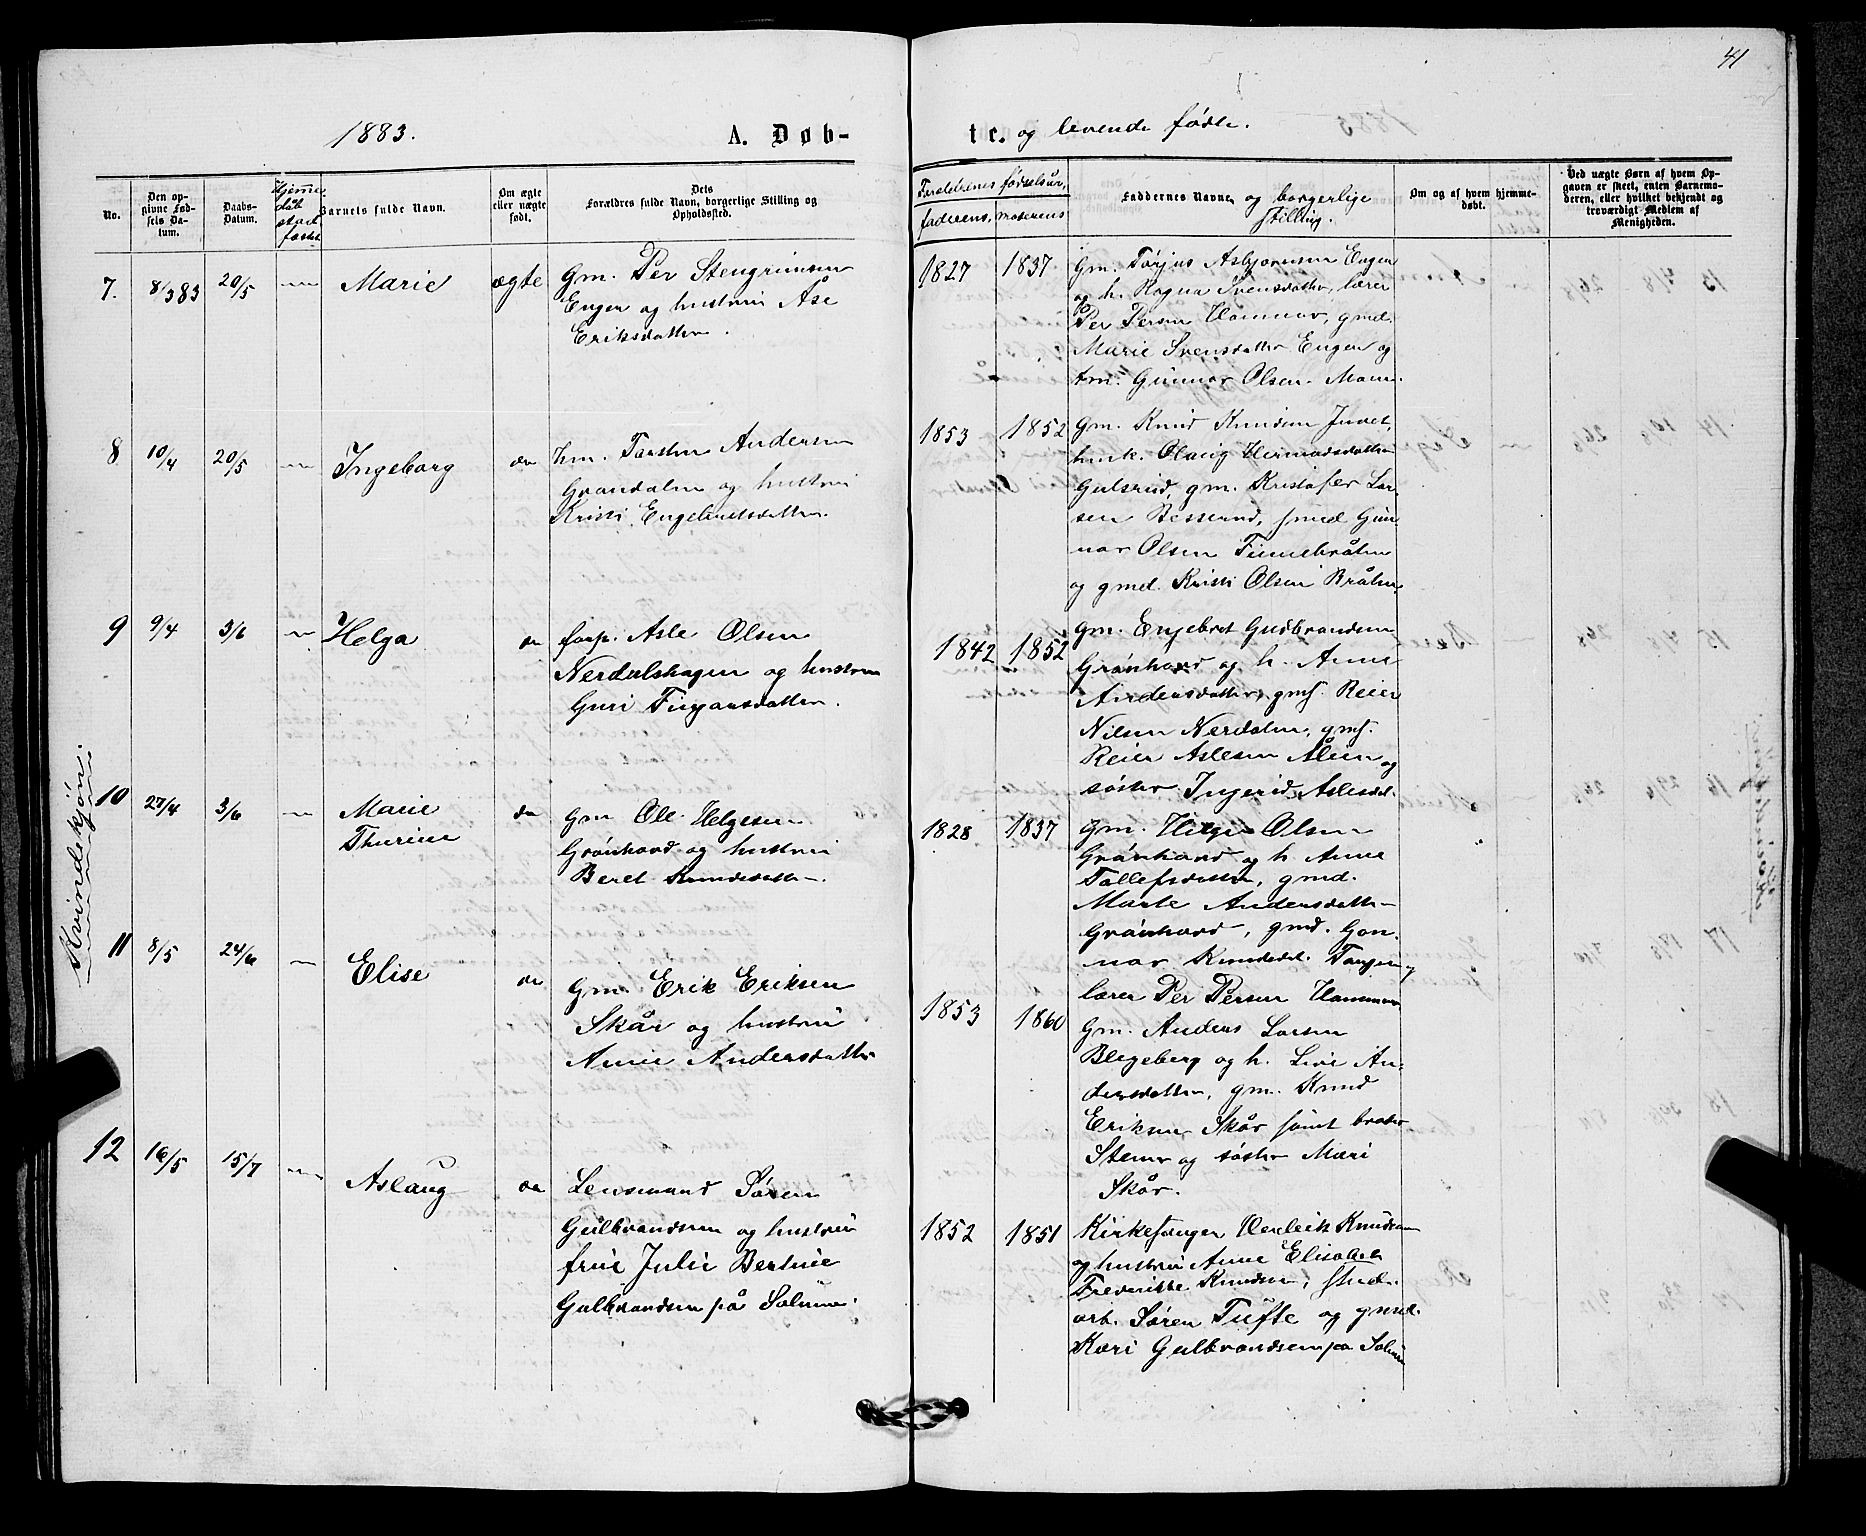 41
1883.
A. Døb-
te. og levende fødte.
No.
Den op-
givne Fød-
sels Da-
tum.
Daabs-
Datum.
Hjemme
døb
stad
fæstet
Barnets fulde Navn.
Om ægte
eller uægte
født.
Dets
Forældres fulde Navn, borgerlige Stilling og
Opholdssted.
Forældrenes fødselsår,
faderens, moderens
Faddernes Navne og borgerlige
stilling.
Om og af hvem hjemme-
døbt.
Ved uægte Børn af hvem Op-
gaven er skeet, enten Barnemo-
deren, eller hvilket bekjendt og
troværdigt Medlem af
Menigheden.
Kvindekjøn.
7. 8/3 83 20/5 Marie ægte
Gm. Per Stengrimsen
Engen og hustru Åse
Eriksdatter.
1827 1837
Gm. Torjus Asbjørnsen Engen
og h. Ragna Svensdatter, lærer
Per Persen Hammar, gmd.
Marie Svensdatter Engen og
Gunnar Olsen Moen.
8 10/4 20/5 Ingeborg do
Hm. Torsten Andersen
Grøndalen og hustru
Kristi Engebretsdatter.
1853 1852
Gm. Knud Knudsen Juvet,
Olaug Hermodsdatter
Gulsrud, gm. Kristofer Lar-
sen Besserud, smed Gun-
nar Olsen Finnebråten
og gmd. Kristi Olsen Bråten.
9 9/4 3/6 Helga do
forp. Asle Olsen
Nerdalshagen og hustru
Guri Fingarsdatter.
1842 1852
Gm. Engebret Gudbrandsen
Grønhovd og h. Anne
Andersdatter, gmf. Reier
Nilsen Nerdalen, gmf.
Reier Aslesen Åleen og
søster Ingerid Aslesdt.
10 27/4 3/6 Marie
Thurine do
Gm Ole Helgesen
Grønhovd og hustru
Beret Knudsdatter.
1828 1837
Gm. Helge Olsen
Grønhovd og h. Anne
Tollefsdatter, gmd.
Marte Andersdatter
Grønhovd, gmd. Gun-
nar Knudsdt. Tangen og
lærer Per Persen Hammar
11 8/5 24/6 Elise do
Gm. Erik Eriksen
Skår og hustru
Anne Andersdatter
1853 1860
Gm. Anders Larsen
Blegeberg og h. Live An-
dersdatter, gm. Knud
Eriksen Skår samt broder
Stener og søster Mari
Skår.
12 16/5 15/7 Aslaug do
Lensmand Søren
Gulbrandsen og hustru
frue Julie Bertine
Gulbrandsen på Solum.
1852 1851
Kirkesanger Henrik Knudsen
og hustru Anne Elisabet
Frederikke Knudsen, sned.
arb. Søren Tufte og gmd.
Kari Gulbrandsen på Solum